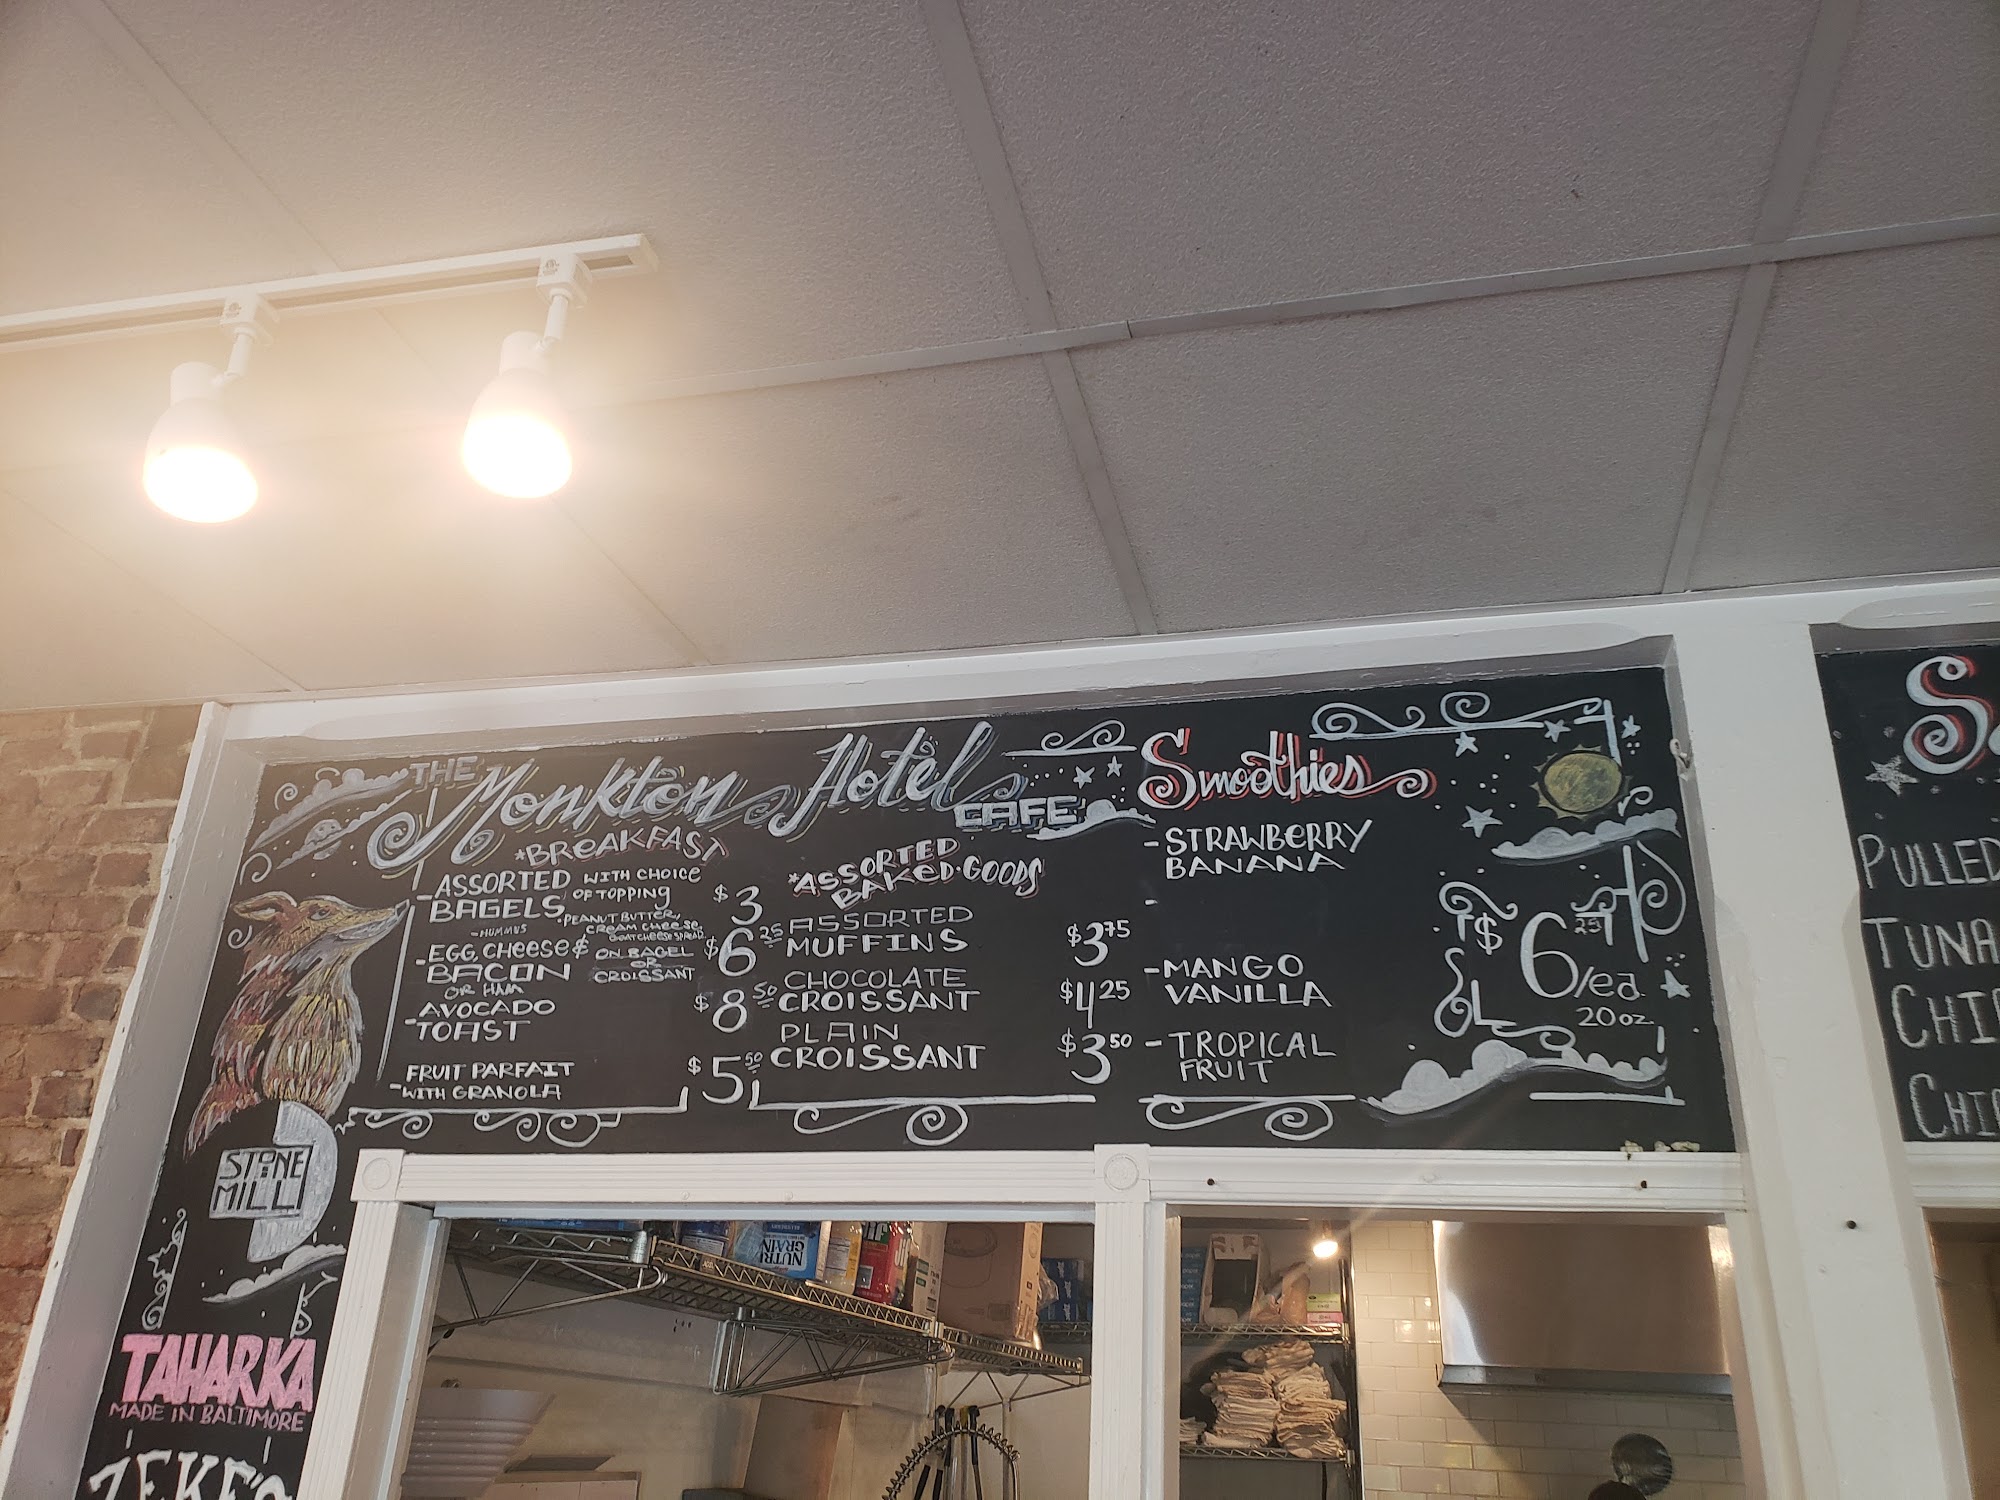 THE Monkton Hotel CAFE
*BREAKFAST
-ASSORTED BAGELS WITH CHOICE OF TOPPING $3
-HUMMUS
-PEANUT BUTTER,
CREAM CHEESE,
GOAT CHEESE SPREAD
-EGG, CHEESE & BACON $6 25
OR HAM
ON BAGEL
OR
CROISSANT
-AVOCADO
TOAST $8 50
-FRUIT PARFAIT
WITH GRANOLA $5 50
*ASSORTED
BAKED·GOODS
ASSORTED
MUFFINS $3 75
CHOCOLATE
CROISSANT $4 25
PLAIN
CROISSANT $3 50
Smoothies
-STRAWBERRY
BANANA
-
-MANGO
VANILLA
-TROPICAL
FRUIT
$6 25 /ea.
20oz.
STONE
MILL
TAHARKA
MADE IN BALTIMORE
ZEKE'S
S
PULLED
TUNA
CHI
CHI
NUTRI
GRAIN